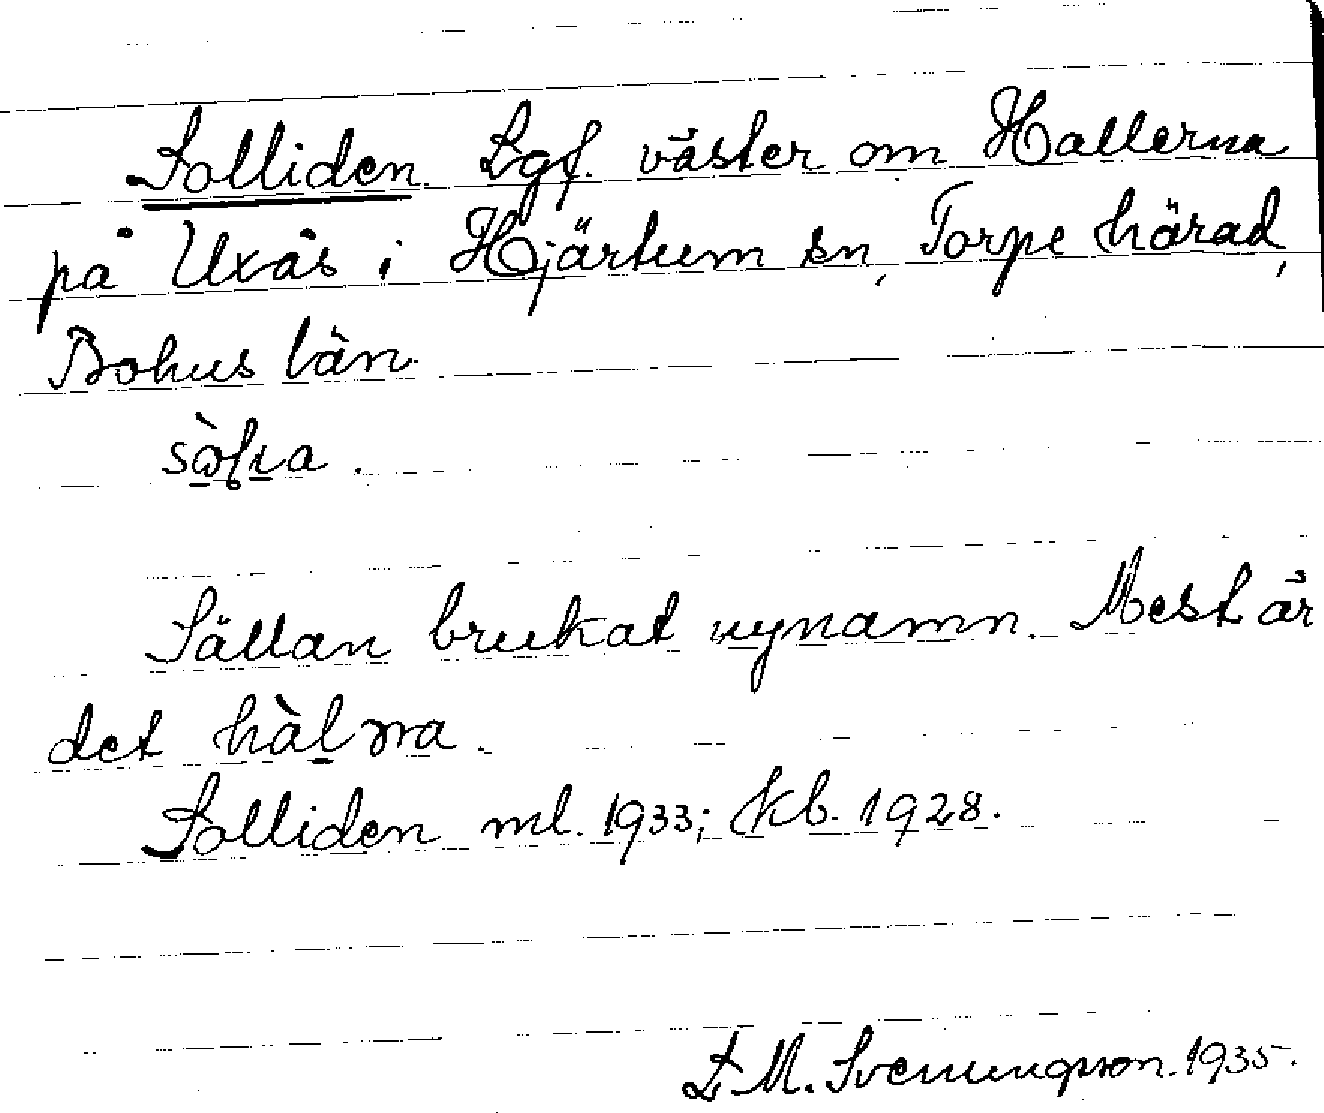 Solliden Lgf. väster om Hallerna
på Uxås i Hjärtum sn, Torpe härad,
Bohus län.
Sällan brukat nynamn. Mest är
det
Solliden ml. 1933; kb. 1928.
M. Svenungsson. 1935.